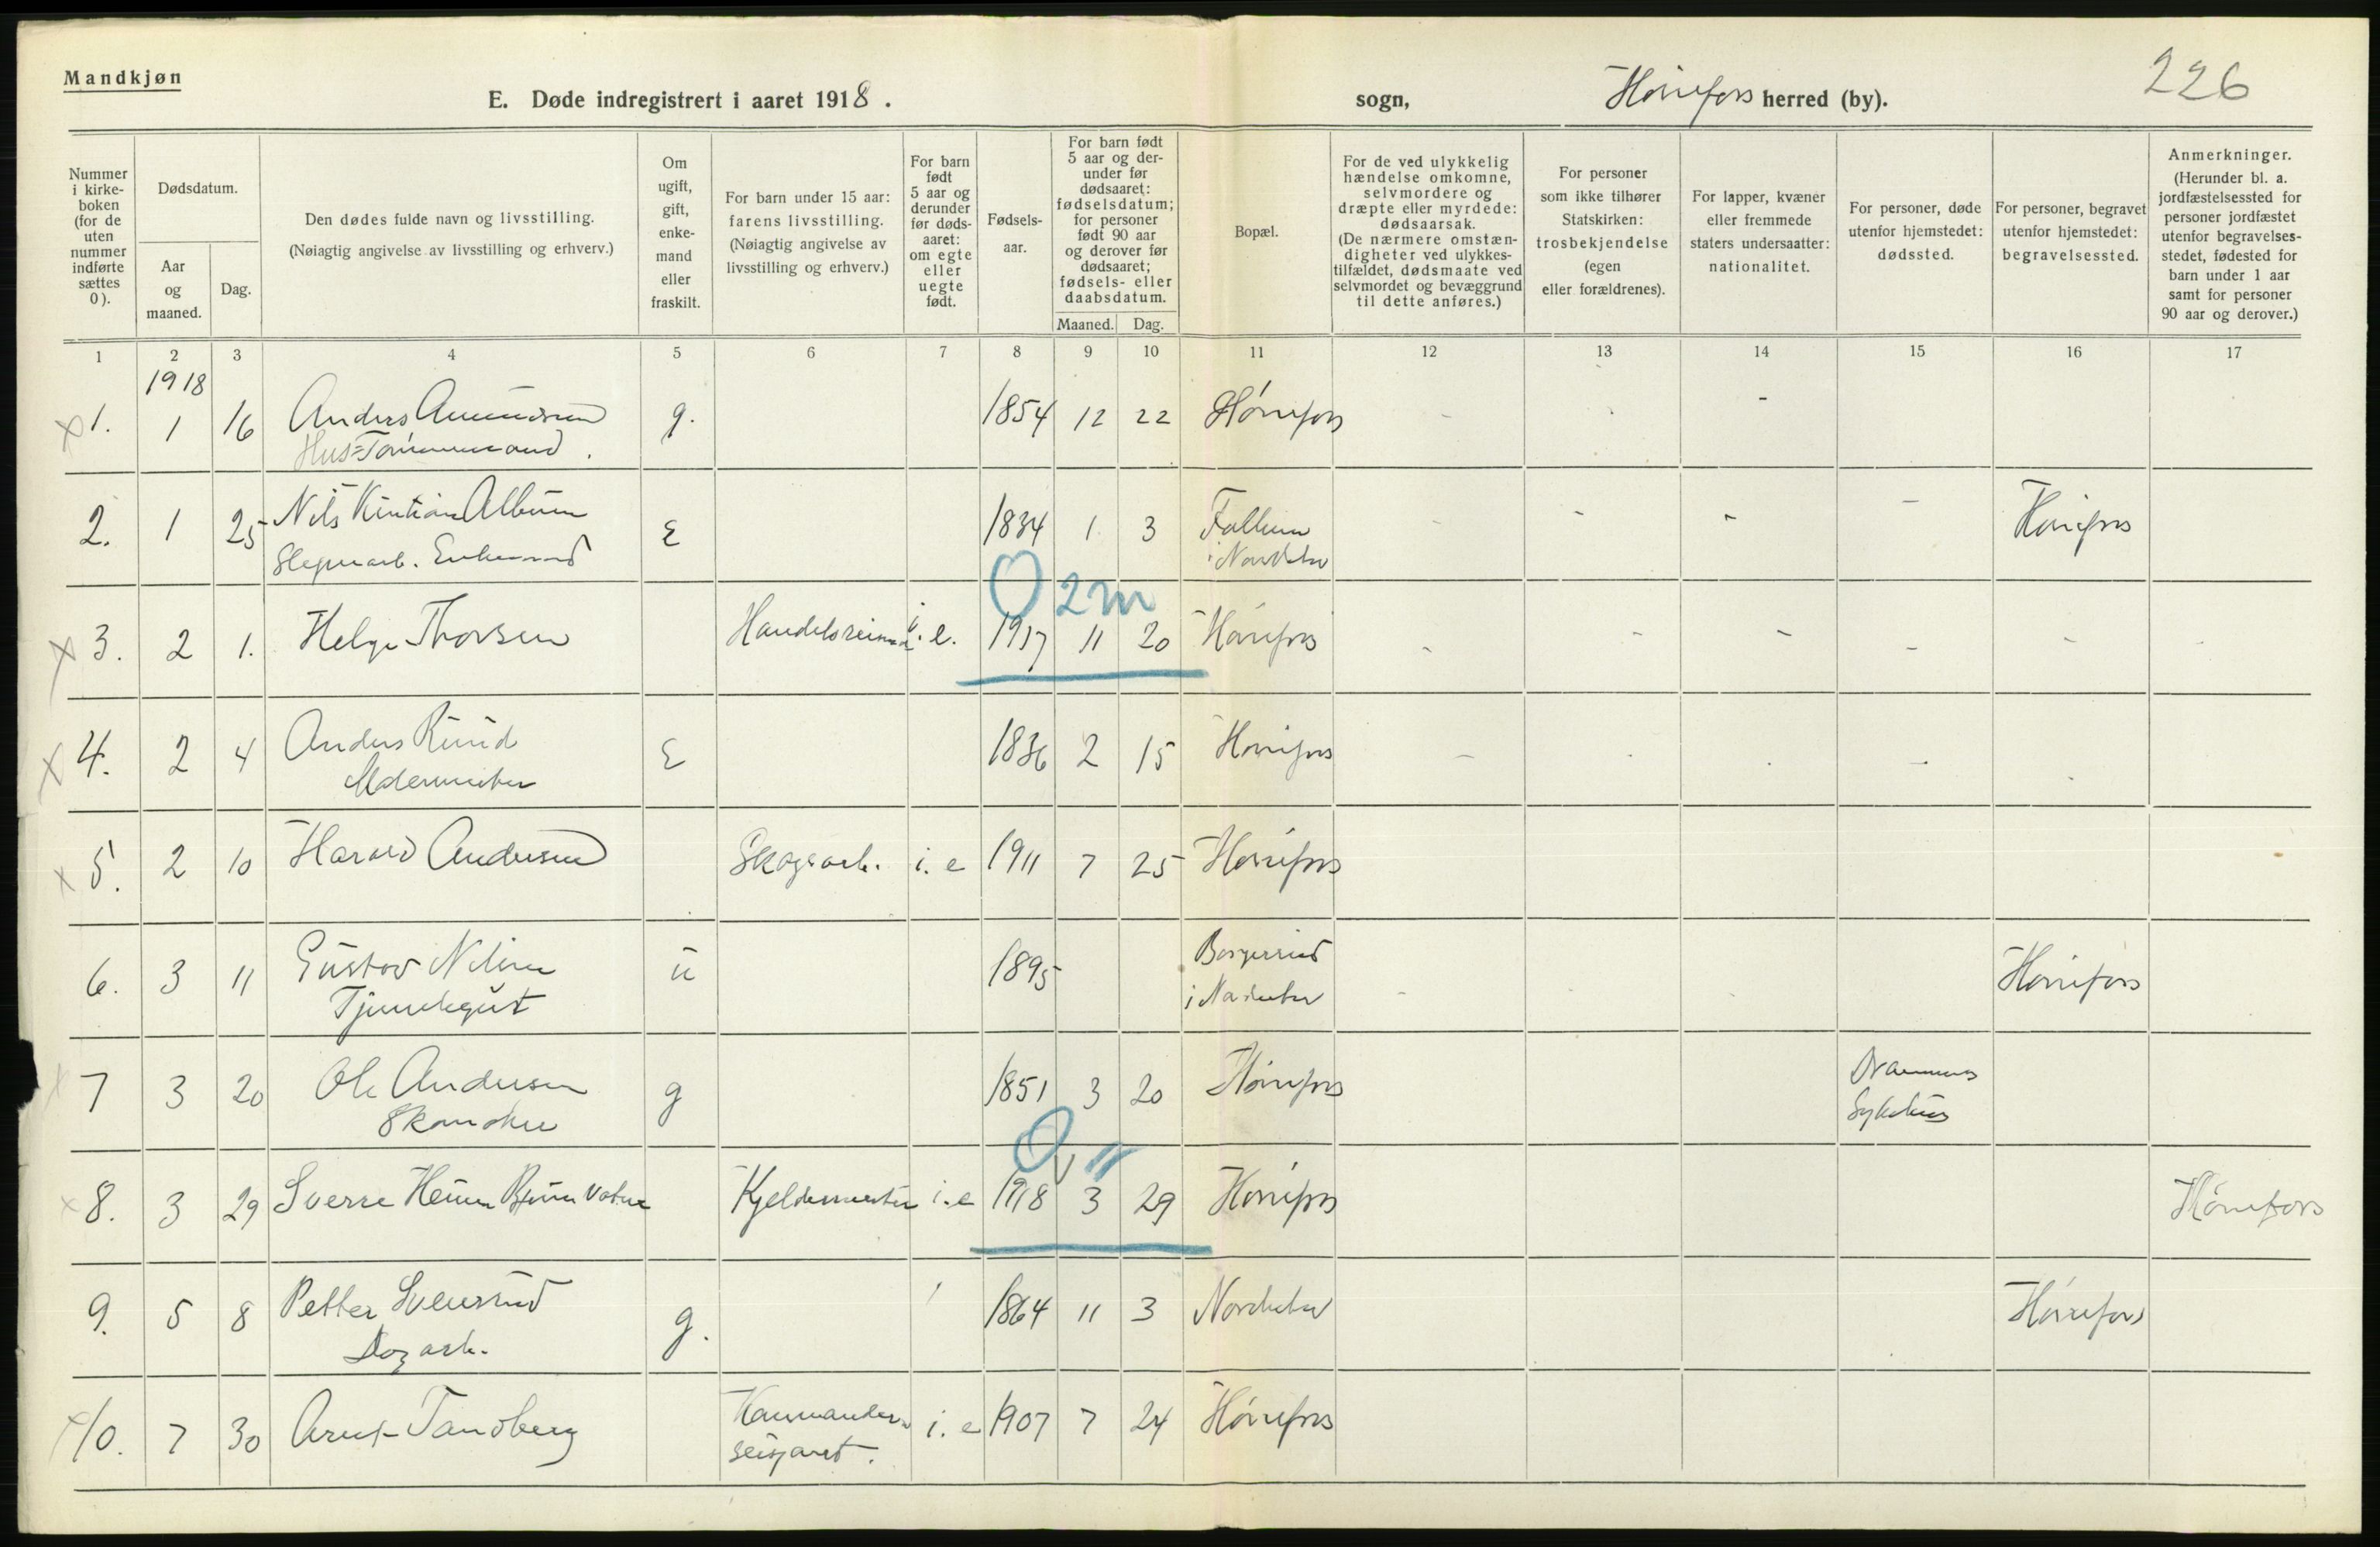 Mandkjøn
E. Døde indregistrert i aaret 1918.
sogn, Hønefoss herred (by).
226
Nummer i kirkeboken (for de uten nummer indførte sættes 0).
Dødsdatum.
Aar og maaned.
Dag.
Den dødes fulde navn og livsstilling.
(Nøiagtig angivelse av livsstilling og erhverv.)
Om ugift, gift, enkemand eller fraskilt.
For barn under 15 aar: farens livsstilling.
(Nøiagtig angivelse av livsstilling og erhverv.)
For barn født 5 aar og derunder før dødsaaret: om egte eller uegte født.
Fødselsaar.
For barn født 5 aar og derunder før dødsaaret: fødselsdatum; for personer født 90 aar og derover før dødsaaret; fødsels- eller daabsdatum.
Maaned. Dag.
Bopæl.
For de ved ulykkelig hændelse omkomne, selvmordere og dræpte eller myrdede: dødsaarsak.
(De nærmere omstændigheter ved ulykkestilfældet, dødsmaate ved selvmordet og bevæggrund til dette anføres.)
For personer som ikke tilhører Statskirken: trosbekjendelse (egen eller forældrenes).
For lapper, kvæner eller fremmede staters undersaatter: nationalitet.
For personer, døde utenfor hjemstedet: dødssted.
For personer, begravet utenfor hjemstedet: begravelsessted.
Anmerkninger.
(Herunder bl. a. jordfæstelsessted for personer jordfæstet utenfor begravelsesstedet, fødested for barn under 1 aar samt for personer 90 aar og derover.)
1 2 3 4 5 6 7 8 9 10 11 12 13 14 15 16 17
1918
x 1. 1 16 Anders Amundsen g. 1854 12 22 Hønefoss - - -
Hus-Tømmermand.
2. 1 25 Nils Kristian Album E 1834 1 3 - - - - Hønefoss
Enkemand i Norderhov
O 2 m
x 3. 2 1. Helge Thorsen Handelsreisende i. e. 1917 11 20 Hønefoss - - - - -
x 4. 2 4 Anders Ruud E 1836 2 15 Hønefoss - - - - -
Malermester
x 5. 2 10 Harald Andersen Skogsarb. i. e 1911 7 25 Hønefoss
6. 3 11 Gustav Nilsen u 1895 Hønefoss
Tjenestegut i Norderhov
x 7 3 20 Ole Andersen g 1851 3 20 Hønefoss Drammens
Skomaker Sykehus
O
x 8. 3 29 Sverre Vatne i. e 1918 3 29 Hønefoss Hønefoss
9. 5 8 Petter Svensrud g. 1864 11 3 Norderhov Hønefoss
x 10. 7 30 Arne Tandberg i. e 1907 7 24 Hønefoss